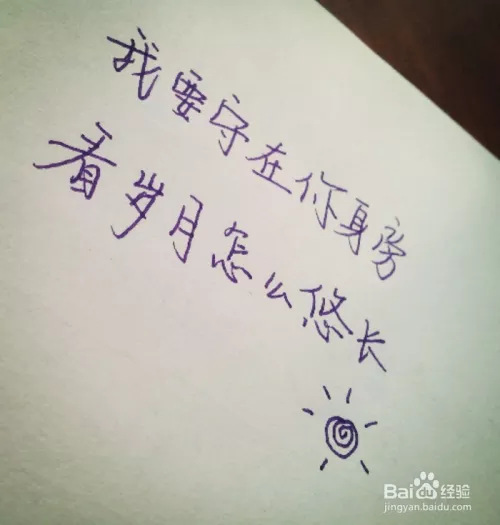 我要守在你身旁
看岁月怎么悠长
Bai百度经验
jingyan.baidu.com